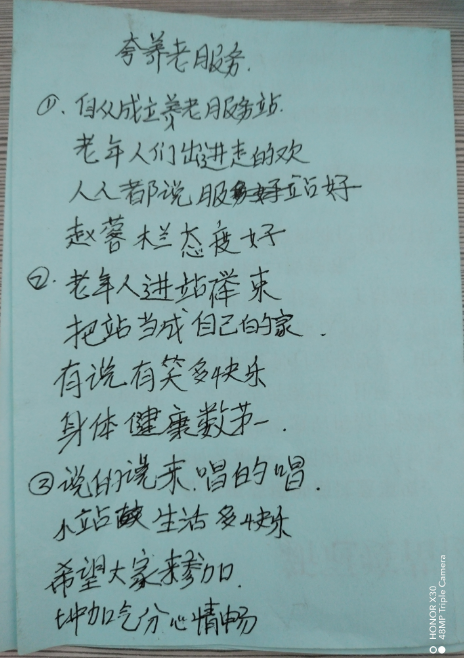 夸养老服务.
①. 自从成立养老服务站.
老年人们出进走的欢
人人都说服务站好
赵蓉栏态度好
②. 老年人进站得来
把站当成自己的家.
有说有笑多快乐
身体健康数第一.
③说的说来.唱的唱.
小站生活多快乐
希望大家来参加.
增加气分心情畅
HONOR X30
48MP Triple Camera